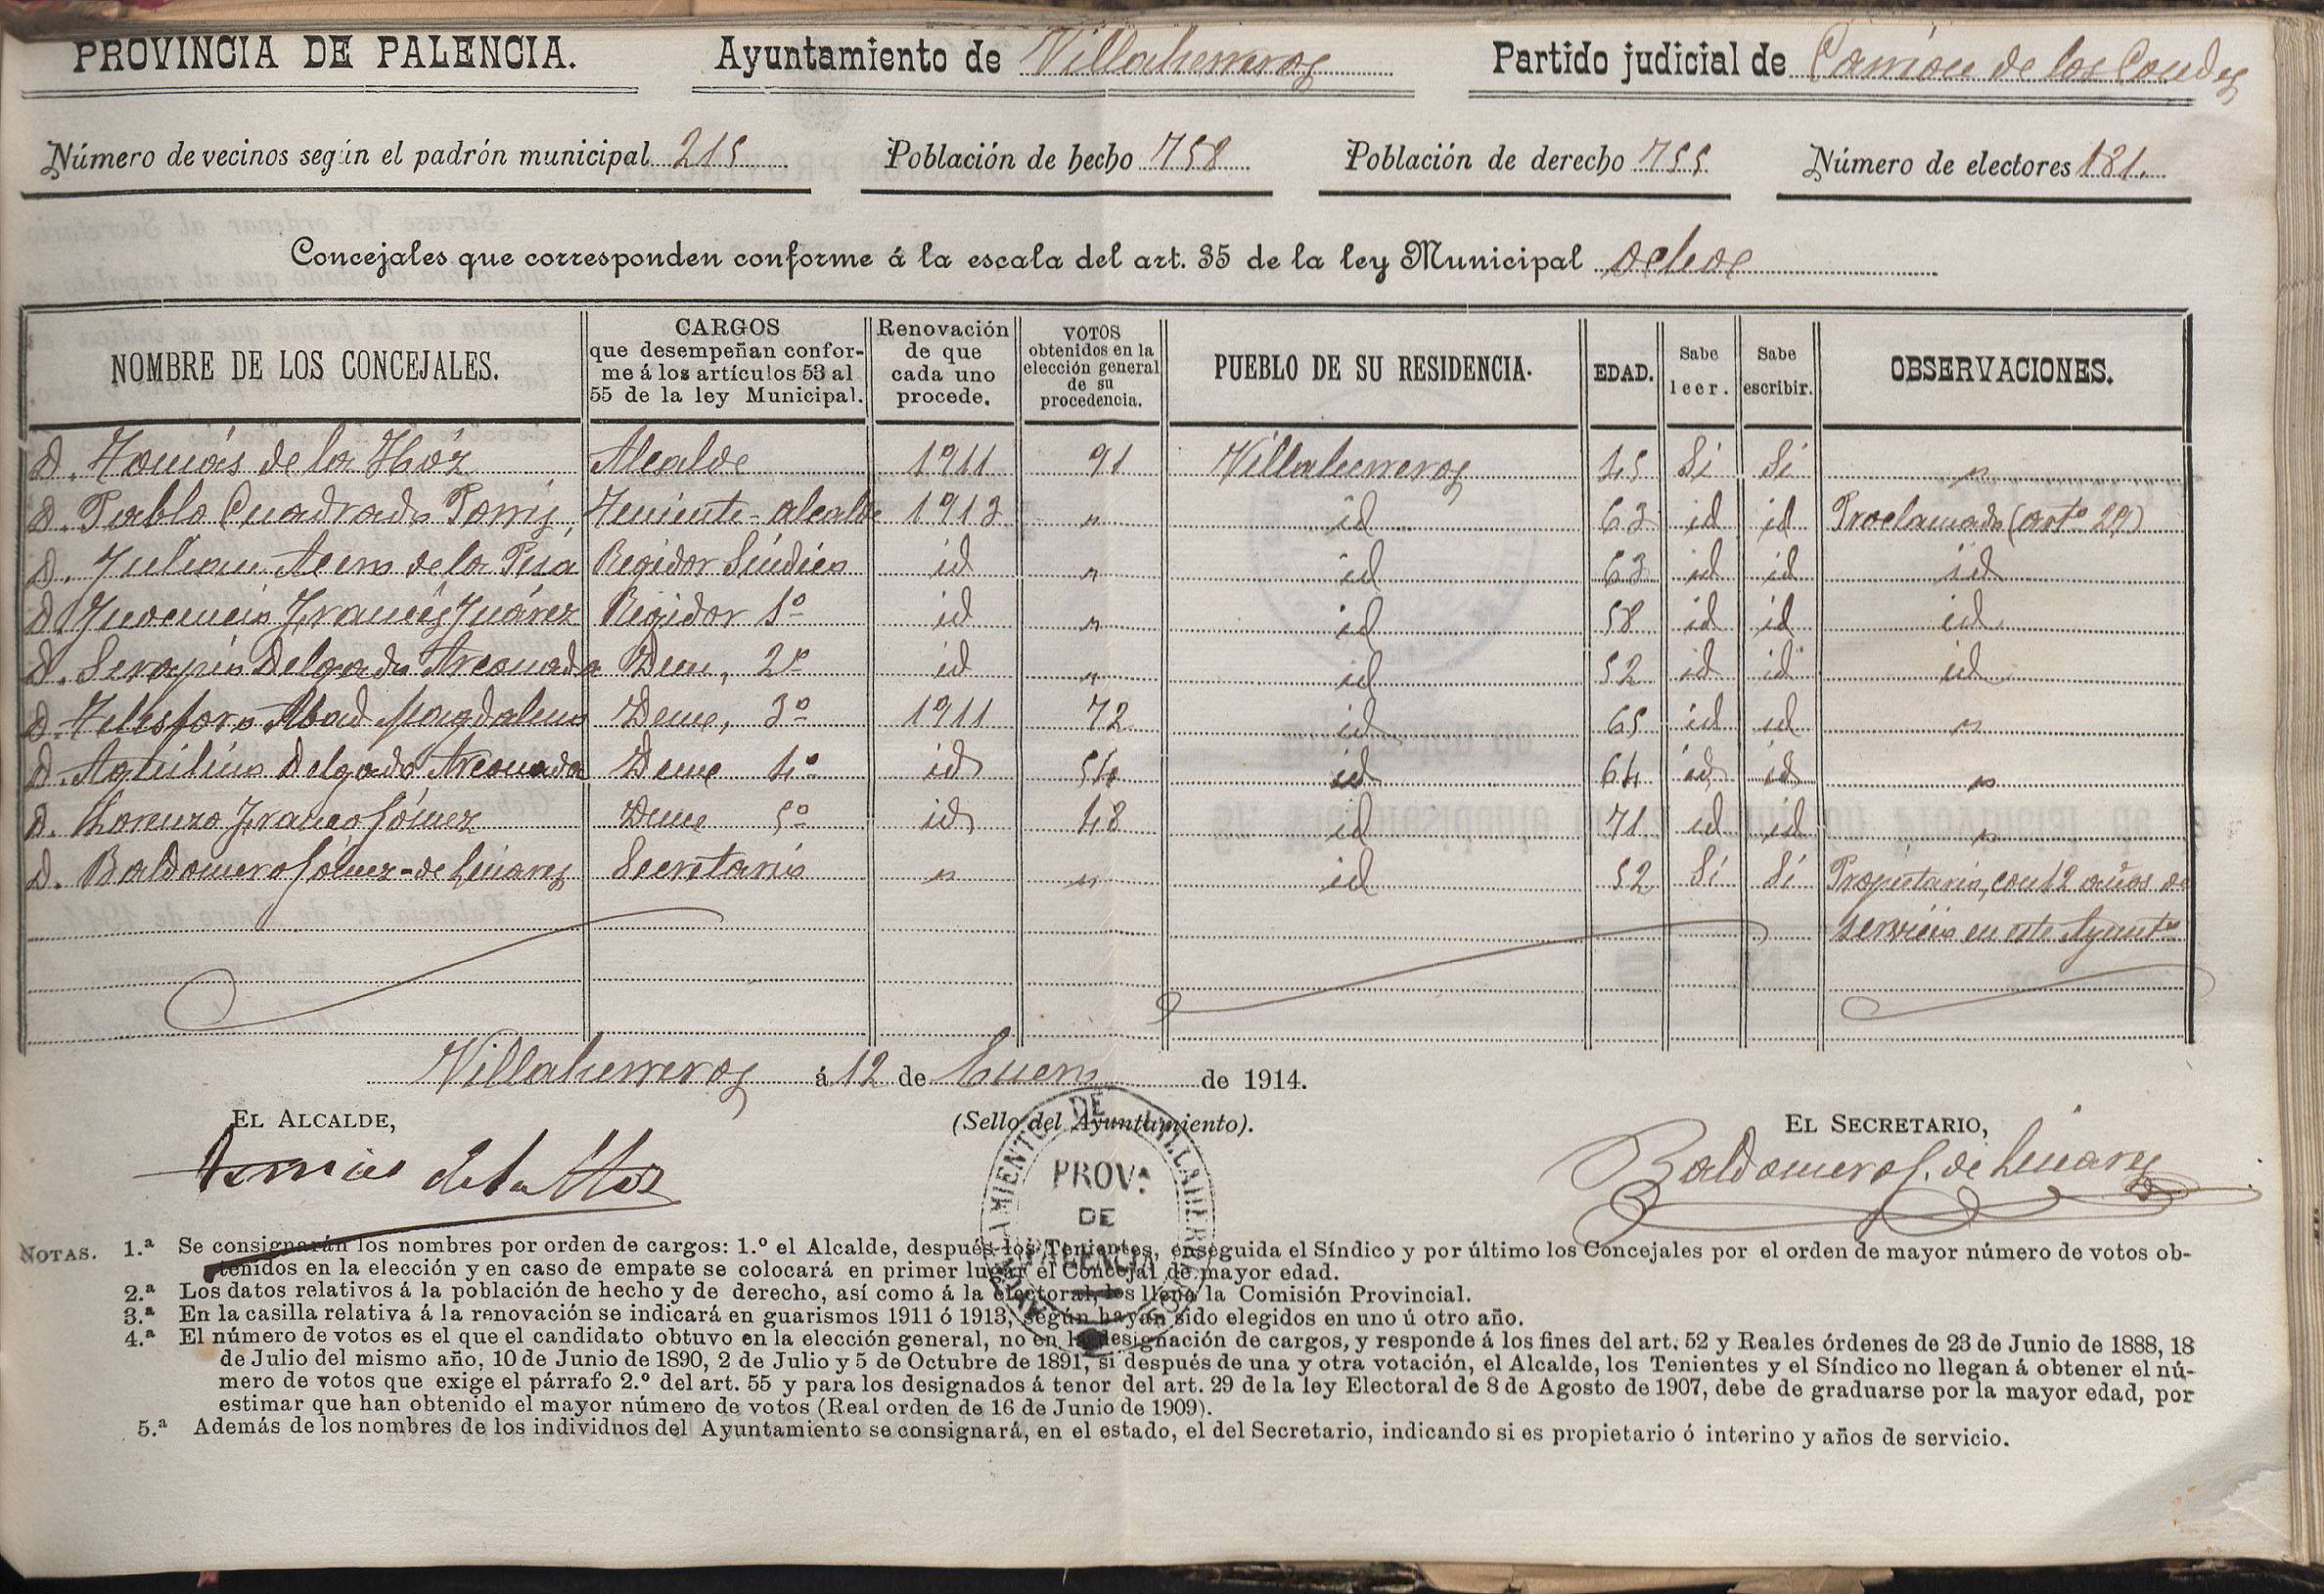 PROVINCIA DE PALENCIA. Ayuntamiento de Villaherreros Partido judicial de Carrión de los Condes
Número de vecinos según el padrón municipal 215 Población de hecho 758 Población de derecho 755 Número de electores 181.
Concejales que corresponden conforme á la escala del art. 35 de la ley Municipal ocho
NOMBRE DE LOS CONCEJALES. CARGOS que desempeñan confor- me á los artículos 53 al 55 de la ley Municipal. Renovación de que cada uno procede. VOTOS obtenidos en la elección general de su procedencia. PUEBLO DE SU RESIDENCIA. EDAD. Sabe leer. Sabe escribir. OBSERVACIONES.
D. Tomás de la Hóz Alcalde 1911 91 Villaherreros 45 Si Si "
D. Pablo Cuadrado Torres, Teniente-alcalde 1913 " id 63 id id Proclamado (artº 29)
D. Julian Acero de la Regidor Síndico id " id 63 id id id
D. Inocencio Francés Juárez Regidor 1º id " id 58 id id id
D. Serapio Delgado Arconada Dem, 2º id " id 52 id id id
D. Telesforo Abad Magdaleno Deme, 3º 1911 72 id 65 id id "
D. Aquilino Delgado Arconada Deme 4º id 54 id 64 id id "
D. Lorenzo Franco Gómez Deme 5º id 48 id 71 id id "
D. Baldomero Gómez-de Linares Secretario " " id 52 Si Si Propietario, con 12 años de
servicio en este Ayuntº
Villaherreros á 12 de Enero de 1914.
EL ALCALDE, (Sello del Ayuntamiento). EL SECRETARIO,
Tomás de la Hoz Baldomero G. de Linares
PROVA DE PALENCIA
NOTAS. 1.ª Se consignarán los nombres por orden de cargos: 1.º el Alcalde, después los Tenientes, enseguida el Síndico y por último los Concejales por el orden de mayor número de votos ob-
tenidos en la elección y en caso de empate se colocará en primer lugar el Concejal de mayor edad.
2.ª Los datos relativos á la población de hecho y de derecho, así como á la electoral, los llena la Comisión Provincial.
3.ª En la casilla relativa á la renovación se indicará en guarismos 1911 ó 1913, según hayan sido elegidos en uno ú otro año.
4.ª El número de votos es el que el candidato obtuvo en la elección general, no en la designación de cargos, y responde á los fines del art. 52 y Reales órdenes de 23 de Junio de 1888, 18
de Julio del mismo año, 10 de Junio de 1890, 2 de Julio y 5 de Octubre de 1891, si después de una y otra votación, el Alcalde, los Tenientes y el Síndico no llegan á obtener el nú-
mero de votos que exige el párrafo 2.º del art. 55 y para los designados á tenor del art. 29 de la ley Electoral de 8 de Agosto de 1907, debe de graduarse por la mayor edad, por
estimar que han obtenido el mayor número de votos (Real orden de 16 de Junio de 1909).
5.ª Además de los nombres de los individuos del Ayuntamiento se consignará, en el estado, el del Secretario, indicando si es propietario ó interino y años de servicio.